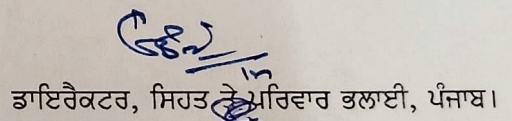 ਡਾਇਰੈਕਟਰ, ਸਿਹਤ ਤੇ ਪਰਿਵਾਰ ਭਲਾਈ, ਪੰਜਾਬ।